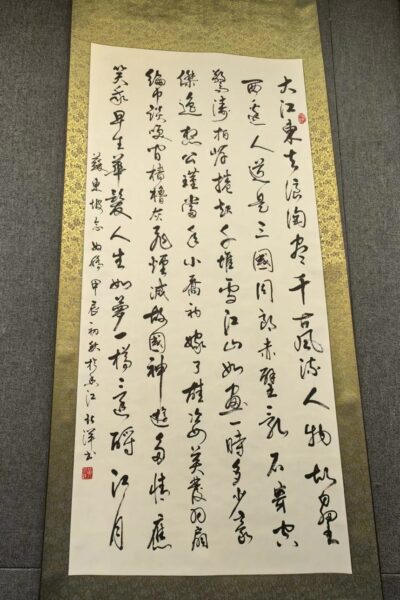 大江東去浪淘盡千古風流人物故壘
西邊人道是三國周郎赤壁亂石穿空
驚濤拍岸捲起千堆雪江山如畫一時多少豪
傑遙想公瑾當年小喬初嫁了雄姿英發羽扇
綸巾談笑間檣櫓灰飛煙滅故國神遊多情應
笑我早生華髮人生如夢一樽還酹江月
蘇東坡念奴嬌甲辰初秋於香江